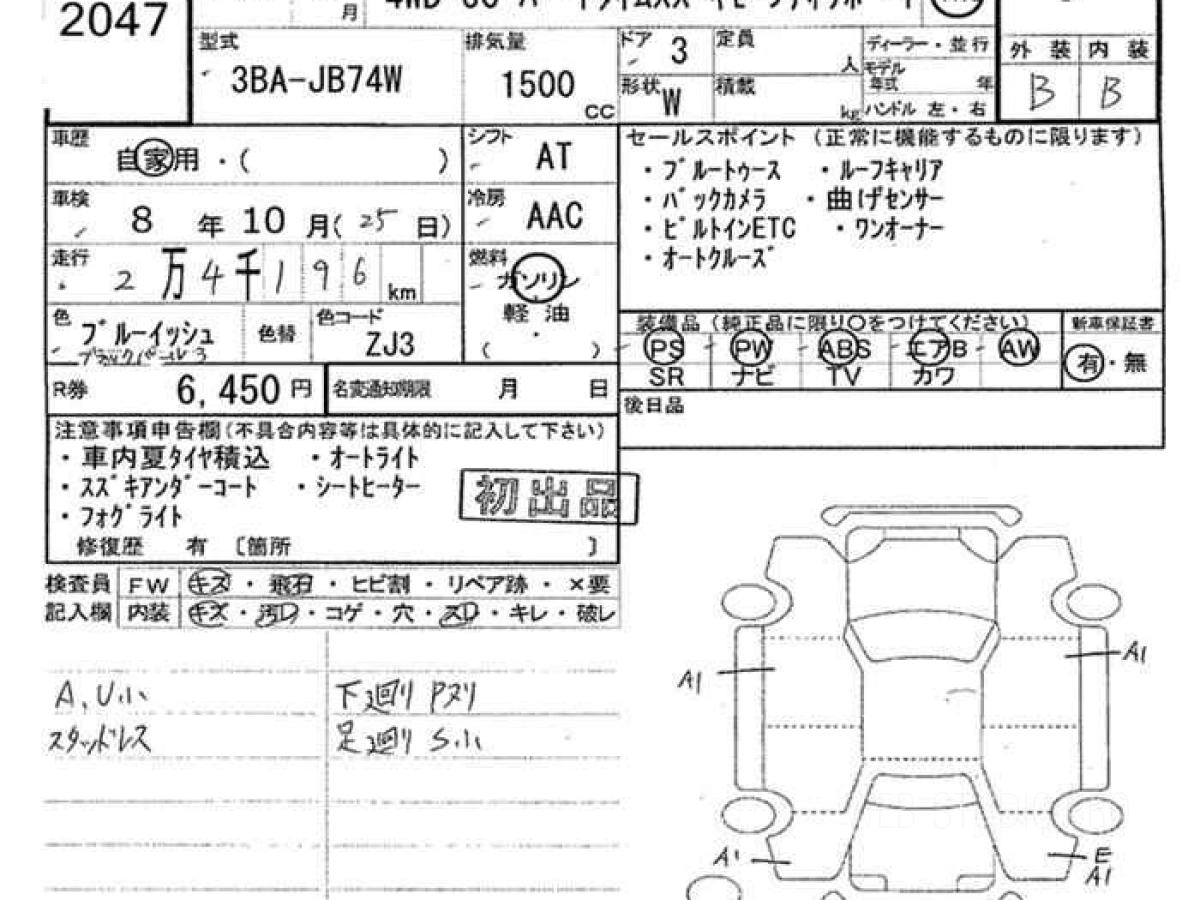 2047
月
型式
3BA-JB74W
排気量
1500
cc
ドア 3
形状 W
定員
人
積載
kg
ディーラー・並行
モデル年式 年
ハンドル 左・右
外装 内装
B B
車歴
自家用・( )
シフト AT
車検 8 年 10 月(25 日)
冷房 AAC
走行 2万4千196 km
燃料 ガソリン
軽油
( ・ )
色 ブルーイッシュ
ブラックパール3
色替
色コード ZJ3
R券 6,450 円
名変通知期限 月 日
セールスポイント (正常に機能するものに限ります)
・ブルートゥース ・ルーフキャリア
・バックカメラ ・曲げセンサー
・ビルトインETC ・ワンオーナー
・オートクルーズ
装備品(純正品に限り○をつけてください) 新車保証書
PS PW ABS エアB AW
SR ナビ TV カワ
有・無
後日品
注意事項申告欄(不具合内容等は具体的に記入して下さい)
・車内夏タイヤ積込 ・オートライト
・スズキアンダーコート ・シートヒーター
・フォグライト
初出品
修復歴 有 〔箇所 〕
検査員 FW キズ・飛石・ヒビ割・リペア跡・×要
記入欄 内装 キズ・汚レ・コゲ・穴・スレ・キレ・破レ
A、U小 下廻り Pヌリ
スタッドレス 足廻り S小
A1 A1
A1 E
A1